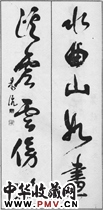 水曲山如畫
溪虛雲傍花
中华收藏网
WWW.PMV.CN